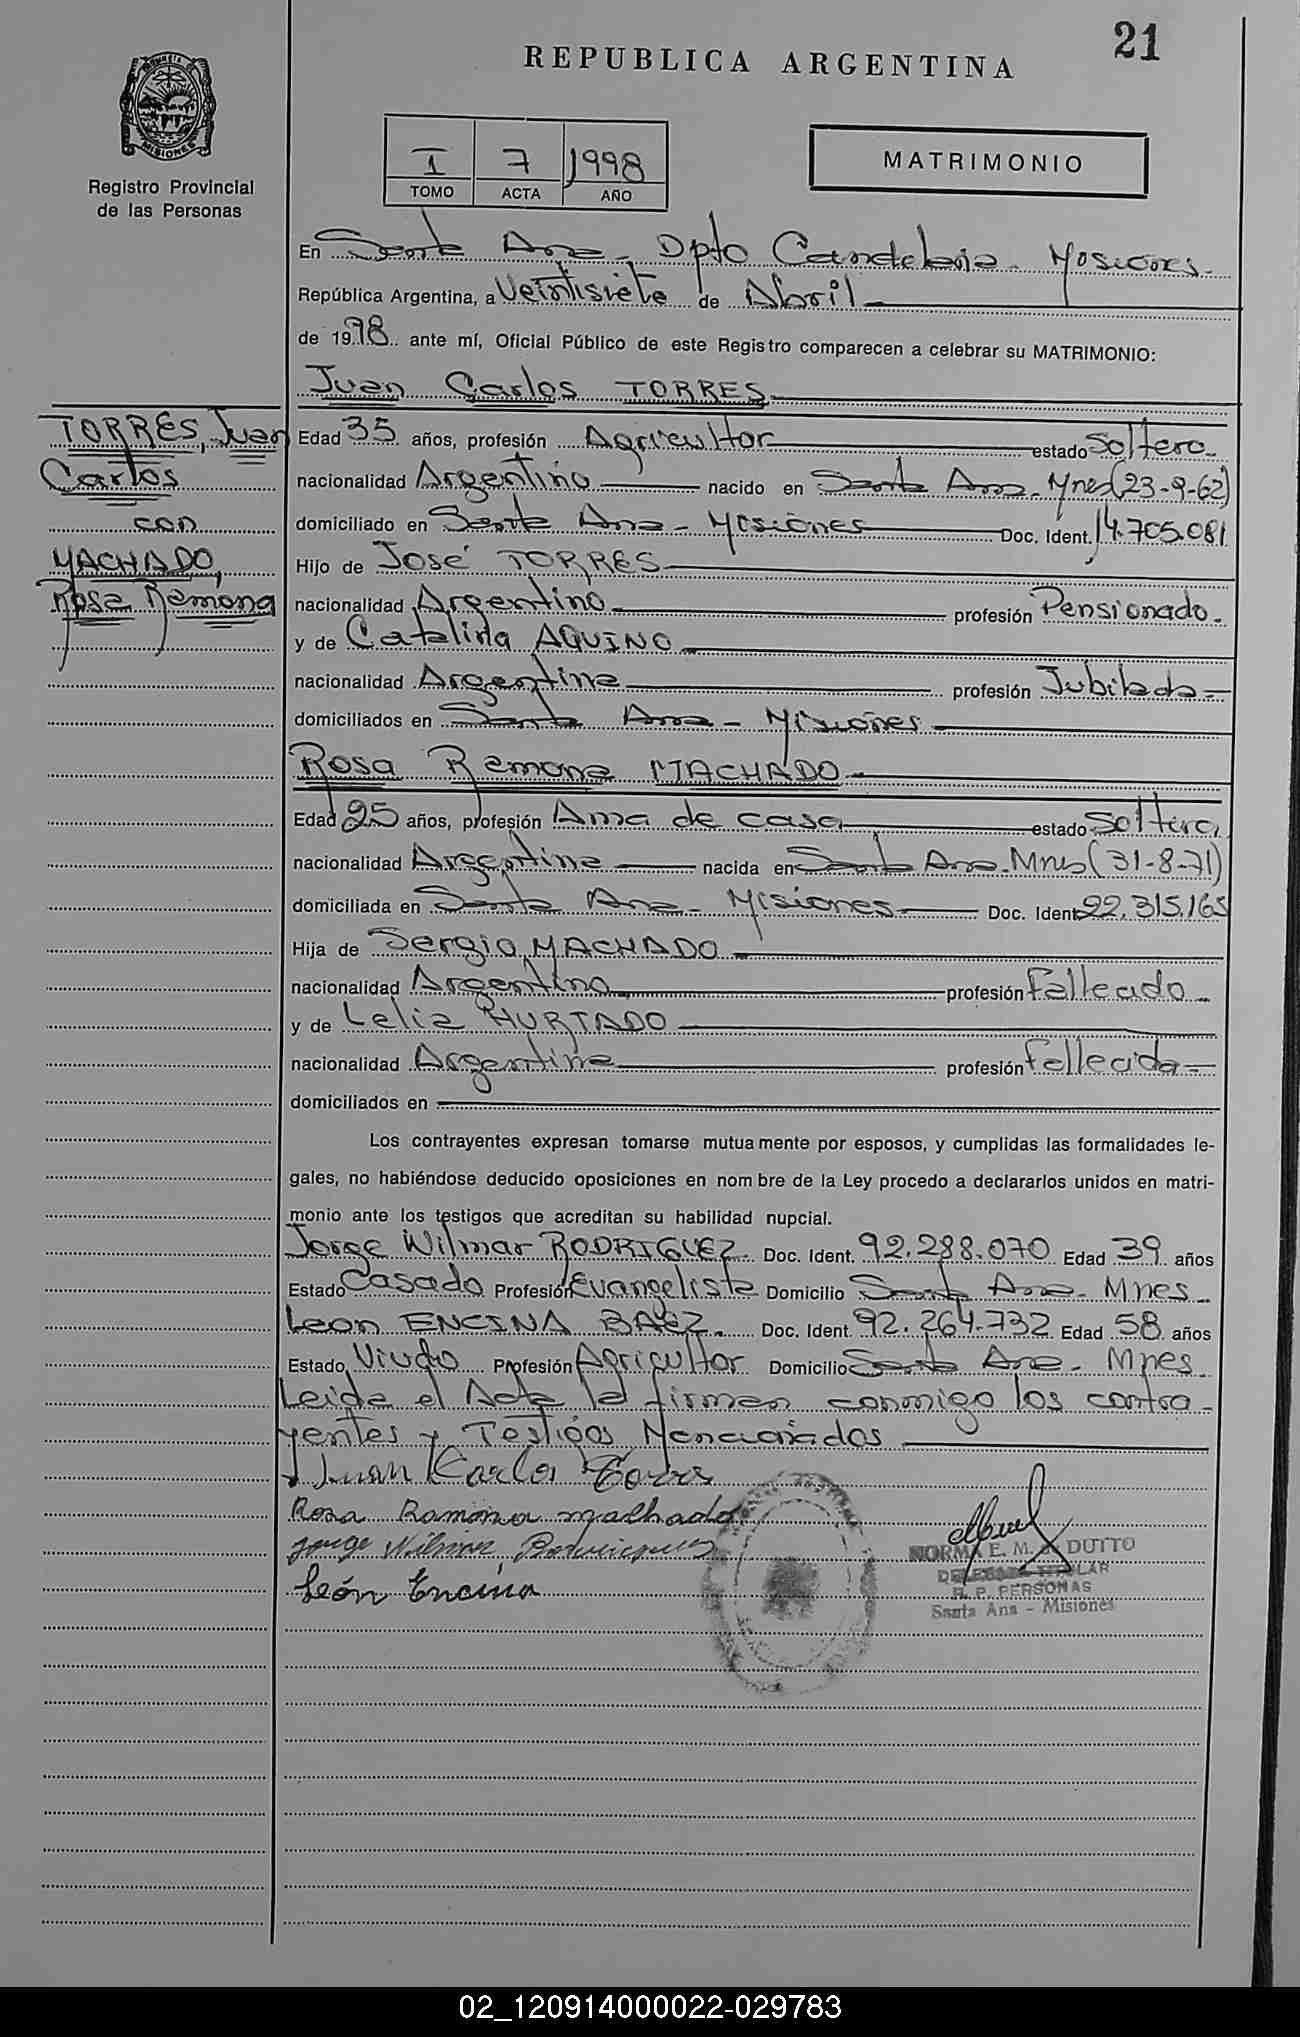 21
REPUBLICA ARGENTINA
PROVINCIA DE
MISIONES
Registro Provincial
de las Personas
I 7 1998
TOMO ACTA AÑO
MATRIMONIO
En Santa Ana - Dpto Candelaria - Misiones -
República Argentina, a Veintisiete de Abril
de 1998 ante mí, Oficial Público de este Registro comparecen a celebrar su MATRIMONIO:
Juan Carlos TORRES
TORRES, Juan
Carlos
con
MACHADO,
Rosa Ramona
Edad 35 años, profesión Agricultor estado Soltero
nacionalidad Argentino nacido en Santa Ana - Mnes (23-9-62)
domiciliado en Santa Ana - Misiones Doc. Ident. 14.705.081
Hijo de José TORRES
nacionalidad Argentino profesión Pensionado.
y de Catalina AQUINO
nacionalidad Argentina profesión Jubilada
domiciliados en Santa Ana - Misiones
Rosa Ramona MACHADO
Edad 25 años, profesión Ama de casa estado Soltera
nacionalidad Argentina nacida en Santa Ana - Mnes (31-8-71)
domiciliada en Santa Ana - Misiones Doc. Ident 22.315.165
Hija de Sergio MACHADO
nacionalidad Argentino profesión Fallecido
y de Lelia HURTADO
nacionalidad Argentina profesión Fallecida
domiciliados en
Los contrayentes expresan tomarse mutuamente por esposos, y cumplidas las formalidades le-
gales, no habiéndose deducido oposiciones en nombre de la Ley procedo a declararlos unidos en matri-
monio ante los testigos que acreditan su habilidad nupcial.
Jorge Wilmar RODRIGUEZ Doc. Ident. 92.288.070 Edad 39 años
Estado Casado Profesión Evangelista Domicilio Santa Ana - Mnes -
Leon ENCINA BAEZ Doc. Ident. 92.264.732 Edad 58 años
Estado Viudo Profesión Agricultor Domicilio Santa Ana - Mnes
Leida el Acta la firman conmigo los contra-
yentes y Testigos Mencionados
Juan Carlos Torres
Rosa Ramona Machado
Jorge Wilmar Rodriguez
León Encina
NORMA E. M. DUTTO
DELEGADA TITULAR
R. P. PERSONAS
Santa Ana - Misiones
02_120914000022-029783